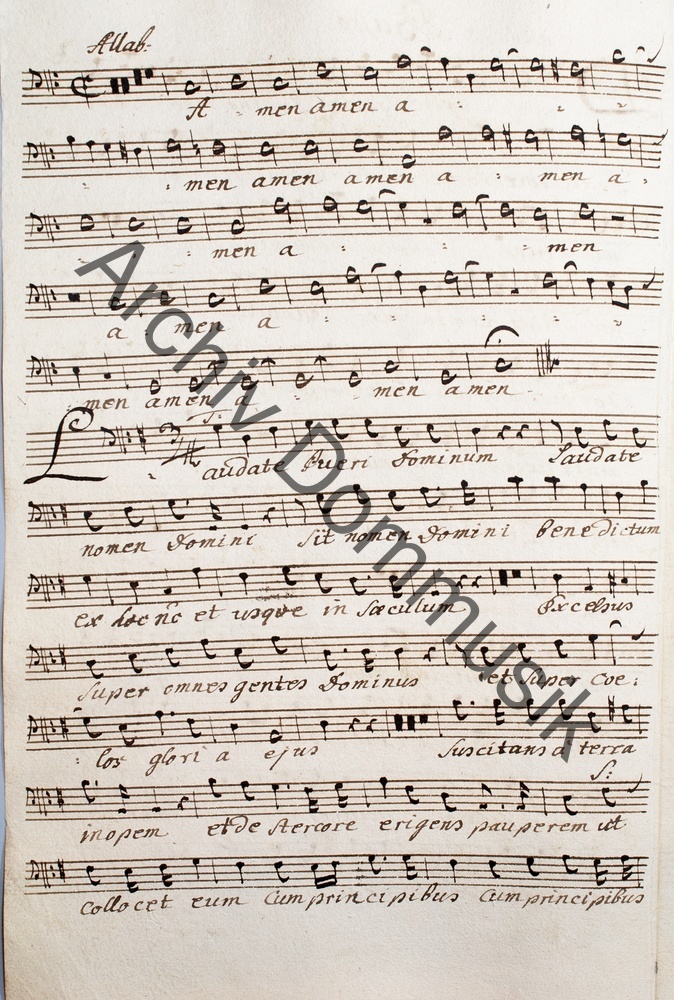 Allab:
A - men amen a
men amen amen a men a
men a men
a men a
men amen a men amen
T:
Laudate Pueri Dominum Laudate
nomen Domini Sit nomen Domini benedictum
ex hoc nc et usque in Sæculum Excelsus
Super omnes gentes Dominus et Super Coe:
los glori a ejus Suscitans à terra
S:
inopem et de Stercore erigens pauperem ut
Collocet eum Cum principibus Cum principibus
Archiv Dommusik